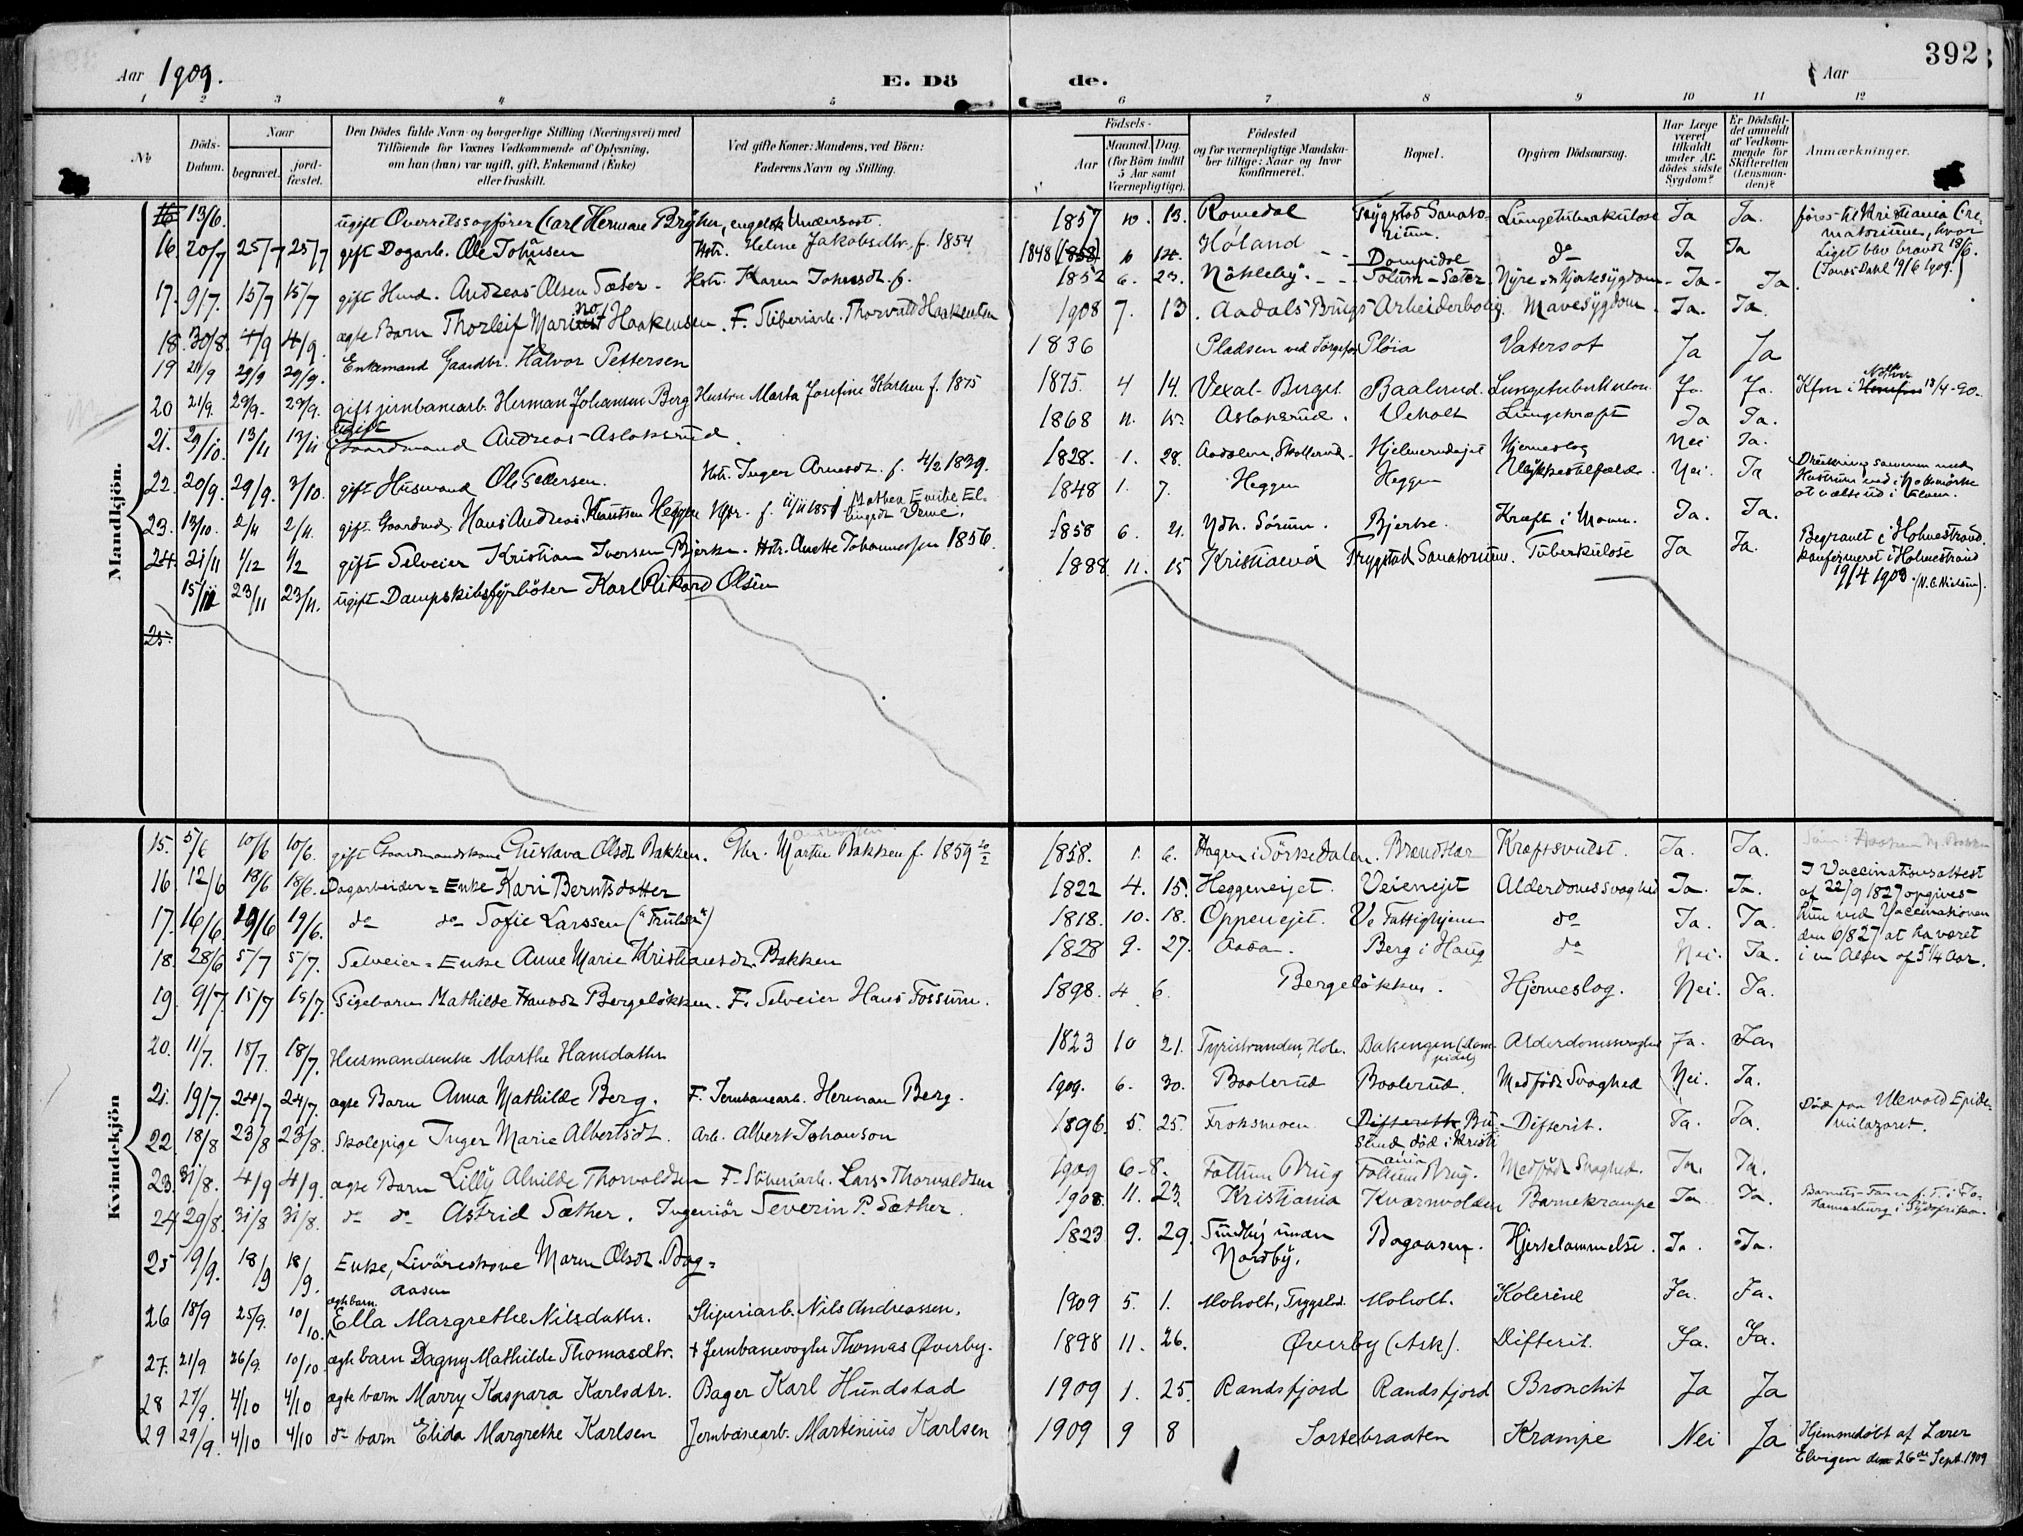 392
Aar 1909.
E. Dö
de.
Aar
1 2 3 4 5 6 7 8 9 10 11 12
No
Döds-Datum.
Naar
begravet.
jord-fæstet.
Den Dödes fulde Navn og borgerlige Stilling (Næringsvei) med
Tilföiende for Voxnes Vedkommende af Oplysning,
om han (hun) var ugift, gift, Enkemand (Enke)
eller fraskilt.
Ved gifte Koner: Mandens, ved Börn:
Faderens Navn og Stilling.
Födsels-
Aar
Maaned. Dag.
(for Börn indtil
5 Aar samt
Værnepligtige).
Födested
og for værnepligtige Mandska-
ber tillige: Naar og hvor
konfirmeret.
Bopæl.
Opgiven Dödsaarsag.
Har Læge
været
tilkaldt
under Af-
dödes sidste
Sygdom?
Er Dödsfal-
det anmeldt
af Vedkom-
mende for
Skifteretten
(Lensman-
den)?
Anmærkninger.
Mandkjön.
16 13/6. ugift Overretssagförer Carl Herman Bryhn, engelsk Undersaat. 1857 10. 13. Romedal Trygstad Sanato-rium. Lungetuberkulose Ja Ja. föres til Kristiania Cre-
matorium, hvor
Liget blev brændt 18/6.
16. 20/7 25/7 25/7 gift Dagarb. Ole Johansen Hstr. Helene Jakobsdtr. f. 1854 1848 (1858) Höland Dompidal do Ja Ja
17. 9/7. 15/7 15/7 gift Hmd. Andreas Olsen Sæter. Hstr. Karen f. 1852 6. 23. Nökleby. Folum-Sæter Nyre- Hjertesygdom Ja Ja
18. 30/8. 4/9 4/9. ægte Barn Thorleif Marino Haakensen. F. Sliberiarb. Thorvald Haakensen 1908 7. 13. Aadals Brugs Arbeiderbolig. Mavesygdom Ja. Ja.
19 29/9 29/9. Enkemand Gaardbr. Halvor Pettersen 1836 Pladsen ved Ploia Vatersot Ja Ja
20 21/9. 29/9. 29/9. gift jernbanearb. Herman Johansen Berg Hustru Marta Josefine Karlsen f. 1875 1875. 4 14. Vexal- Berget Baalerud. Lungetuberkulose Ja. Ja. Kfm i 13/4-90.
21. 29/10. 13/11 13/11 ugift Gaardmand Andreas Aslaksrud. 1868 11. 15. Aslaksrud. Veholt Lungekræft Ja Ja.
22. 20/9. 29/9. 3/10. gift Husmand Ole Pedersen. Hstr. Inger Arnesdt. f. 4/2 1839. 1828. 1. 28. Hjelmerudejet Hjerneslag Nei Ja.
23. 13/10. 2/11 2/11. gift Gaardmd. Hans Andreas Knutsen Heggen Hstr. f. 11/11 1851 Mathea Emilie El-
1848 1. 7. Heggen Heggen Ulykkestilfælde. Nei. Ja
24. 21/11 1/12 1/2 gift Selveier Kristian Iversen Bjerke. Hstr. Anette Johannesen 1856. 1858 6. 21. Ndr. Sörum. Bjerke. Kræft i Maven. Ja. Ja.
15/11 23/11 23/11. ugift Dampskibsfyrböter Karl Rikard Olsen 1888 11. 15 Kristiania Trygstad Sanatorium. Tuberkulose Ja Ja. Begravet i Holmestrand.
konfirmeret i Holmestrand
19/4 1903 (N. C. Nielsen).
25.
Kvindekjön
15. 5/6 10/6 10/6. gift Gaardmandskone Gustava Olsdt. Bakken. Gbr. Martin Bakken f. 1859 1858. 1. 6. Hagen i Sörkedalen. Kræftsvulst. Ja. Ja.
16. 12/6 18/6 18/6. Dagarbeider = Enke Kari Berntsdatter 1822 4. 15. Heggeneijet. Veienejet Alderdomssvaghed Ja. Ja. I Vaccinationsattest
af 22/9 1827 opgives
17. 16/6. 19/6 19/6. do do Sofie Larssen 1818. 10. 18. Oppenejet. Vs Fattighjem do Ja. Ja. hun ved Vaccinationen
den 6/827 at ha været
18. 28/6 5/7 5/7. Selveier = Enke Anne Marie Kristiansdt. Bakken 1828 9. 27. Aasa. Berg i Haug do Nei. Ja. i en Alder af 5 1/4 Aar.
19. 9/7. 15/7 15/7. Pigebarn Mathilde Hansdt. Bergelökken. F. Selveier Hans Fossum. 1898. 4 6. Bergelökken. Hjerneslag. Nei. Ja.
20. 11/7. 18/7. 18/7. Husmandsenke Marthe Hansdatter 1823 10 21. Tyristranden, Hole. Bakingen Alderdomssvaghed Ja. Ja.
21. 19/7. 24/7 24/7. ægte Barn Anna Mathilde Berg. F. Jernbanearb. Herman Berg. 1909. 6. 30. Baalerud Baalerud. Medfödt Svaghed Nei. Ja.
22. 18/8 23/8 23/8. Skolepige Inger Marie Albertsdt. Arb. Albert Johanson 1896. 5. 25. Froksmoen. Difterit. Ja. Ja. Död paa Ullevold Epide-
milazaret.
23. 31/8. 4/9 4/9. ægte Barn Lilly Alvilde Thorvaldsen F. Sliberiarb. Lars Thorvaldsen 1909 6-8. Follum Brug Follum Brug. Medfödt Svaghed. Ja. Ja.
24. 29/8. 31/8 31/8. do do Astrid Sæther. Ingeniör Severin P. Sæther. 1908. 11. 23. Kristiania Kværnvolden Barnekrampe Ja. Ja.
25 9/9. 18/9 18/9. Enke, Maren Olsdt. Bag=
aasen 1823 9. 29. Nordby. Bagaasen. Hjertelammelse. Ja. Ja.
26 18/9 25/9. 10/10. ægte barn Ella Margrethe Nilsdatter. Sliperiarb. Nils Andreassen. 1909 5. 1. Moholt, Trygstad. Moholt. Kolerine Ja. Ja.
27. 21/9 26/9. 10/10. ægte barn Dagny Mathilde Thomasdtr. + Jernbanevogter Thomas Øverby. 1898 11. 26. Øverby (Ask). Difterit. Ja. Ja.
28 27/9. 4/10 4/10 ægte barn Marry Kaspara Karlsdtr. Bager Karl Hundstad 1909 1. 25. Randsfjord Randsfjord Bronchit Ja Ja
29 29/9. 4/10 4/10 do barn Elida Margrethe Karlsen Jernbanearb. Martinius Karlsen 1909 9 8 Sortebraaten Krampe Nei Ja Hjemmedöbt af Lærer
Elvigen den 26de Sept. 1909